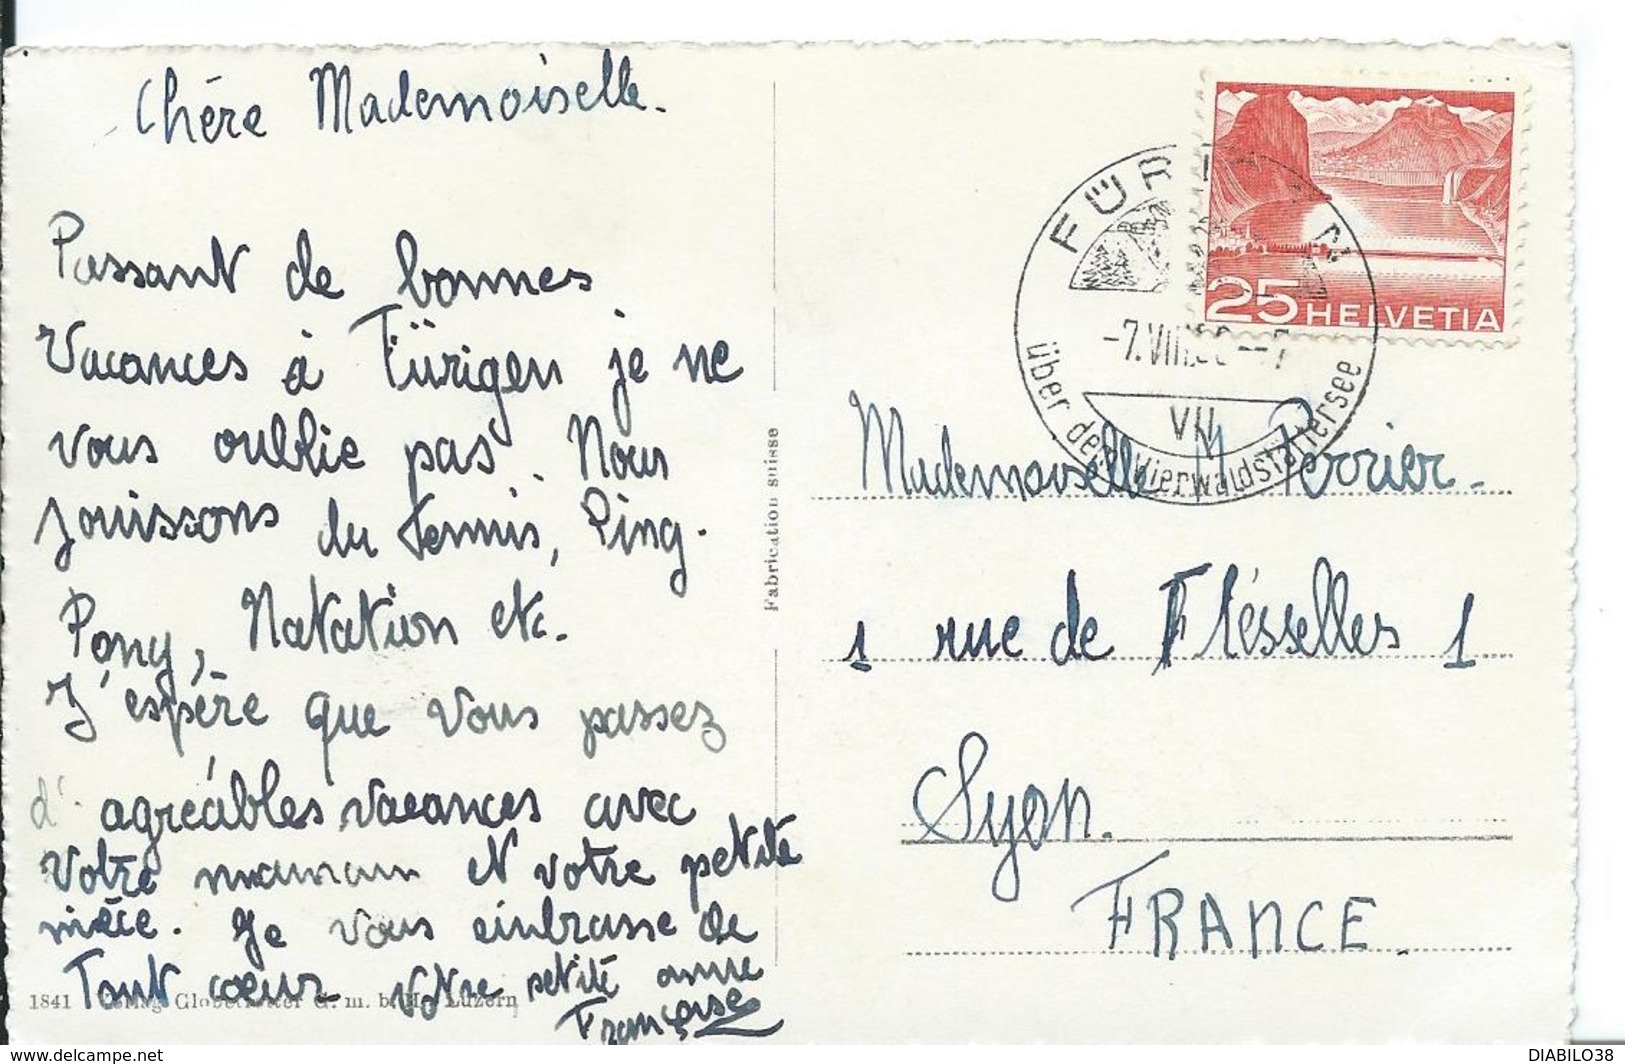 Chère Mademoiselle.
Passant de bonnes
vacances à Fürigen je ne
vous oublie pas. Nous
jouissons du tennis, Ping-
Pong, Natation etc.
J'espère que vous passez
d'agréables vacances avec
votre maman et votre petite
nièce. Je vous embrasse de
Tout coeur votre petite amie
Françoise
1841 Verlag Globetrotter G. m. b. H., Luzern
Fabrication suisse
FÜRIGEN
-7.VIII
VII
über dem Vierwaldstättersee
25 HELVETIA
Mademoiselle M Perrier.
1 rue de Flésselles 1
Lyon.
FRANCE.
DIABILO38
https://www.delcampe.net